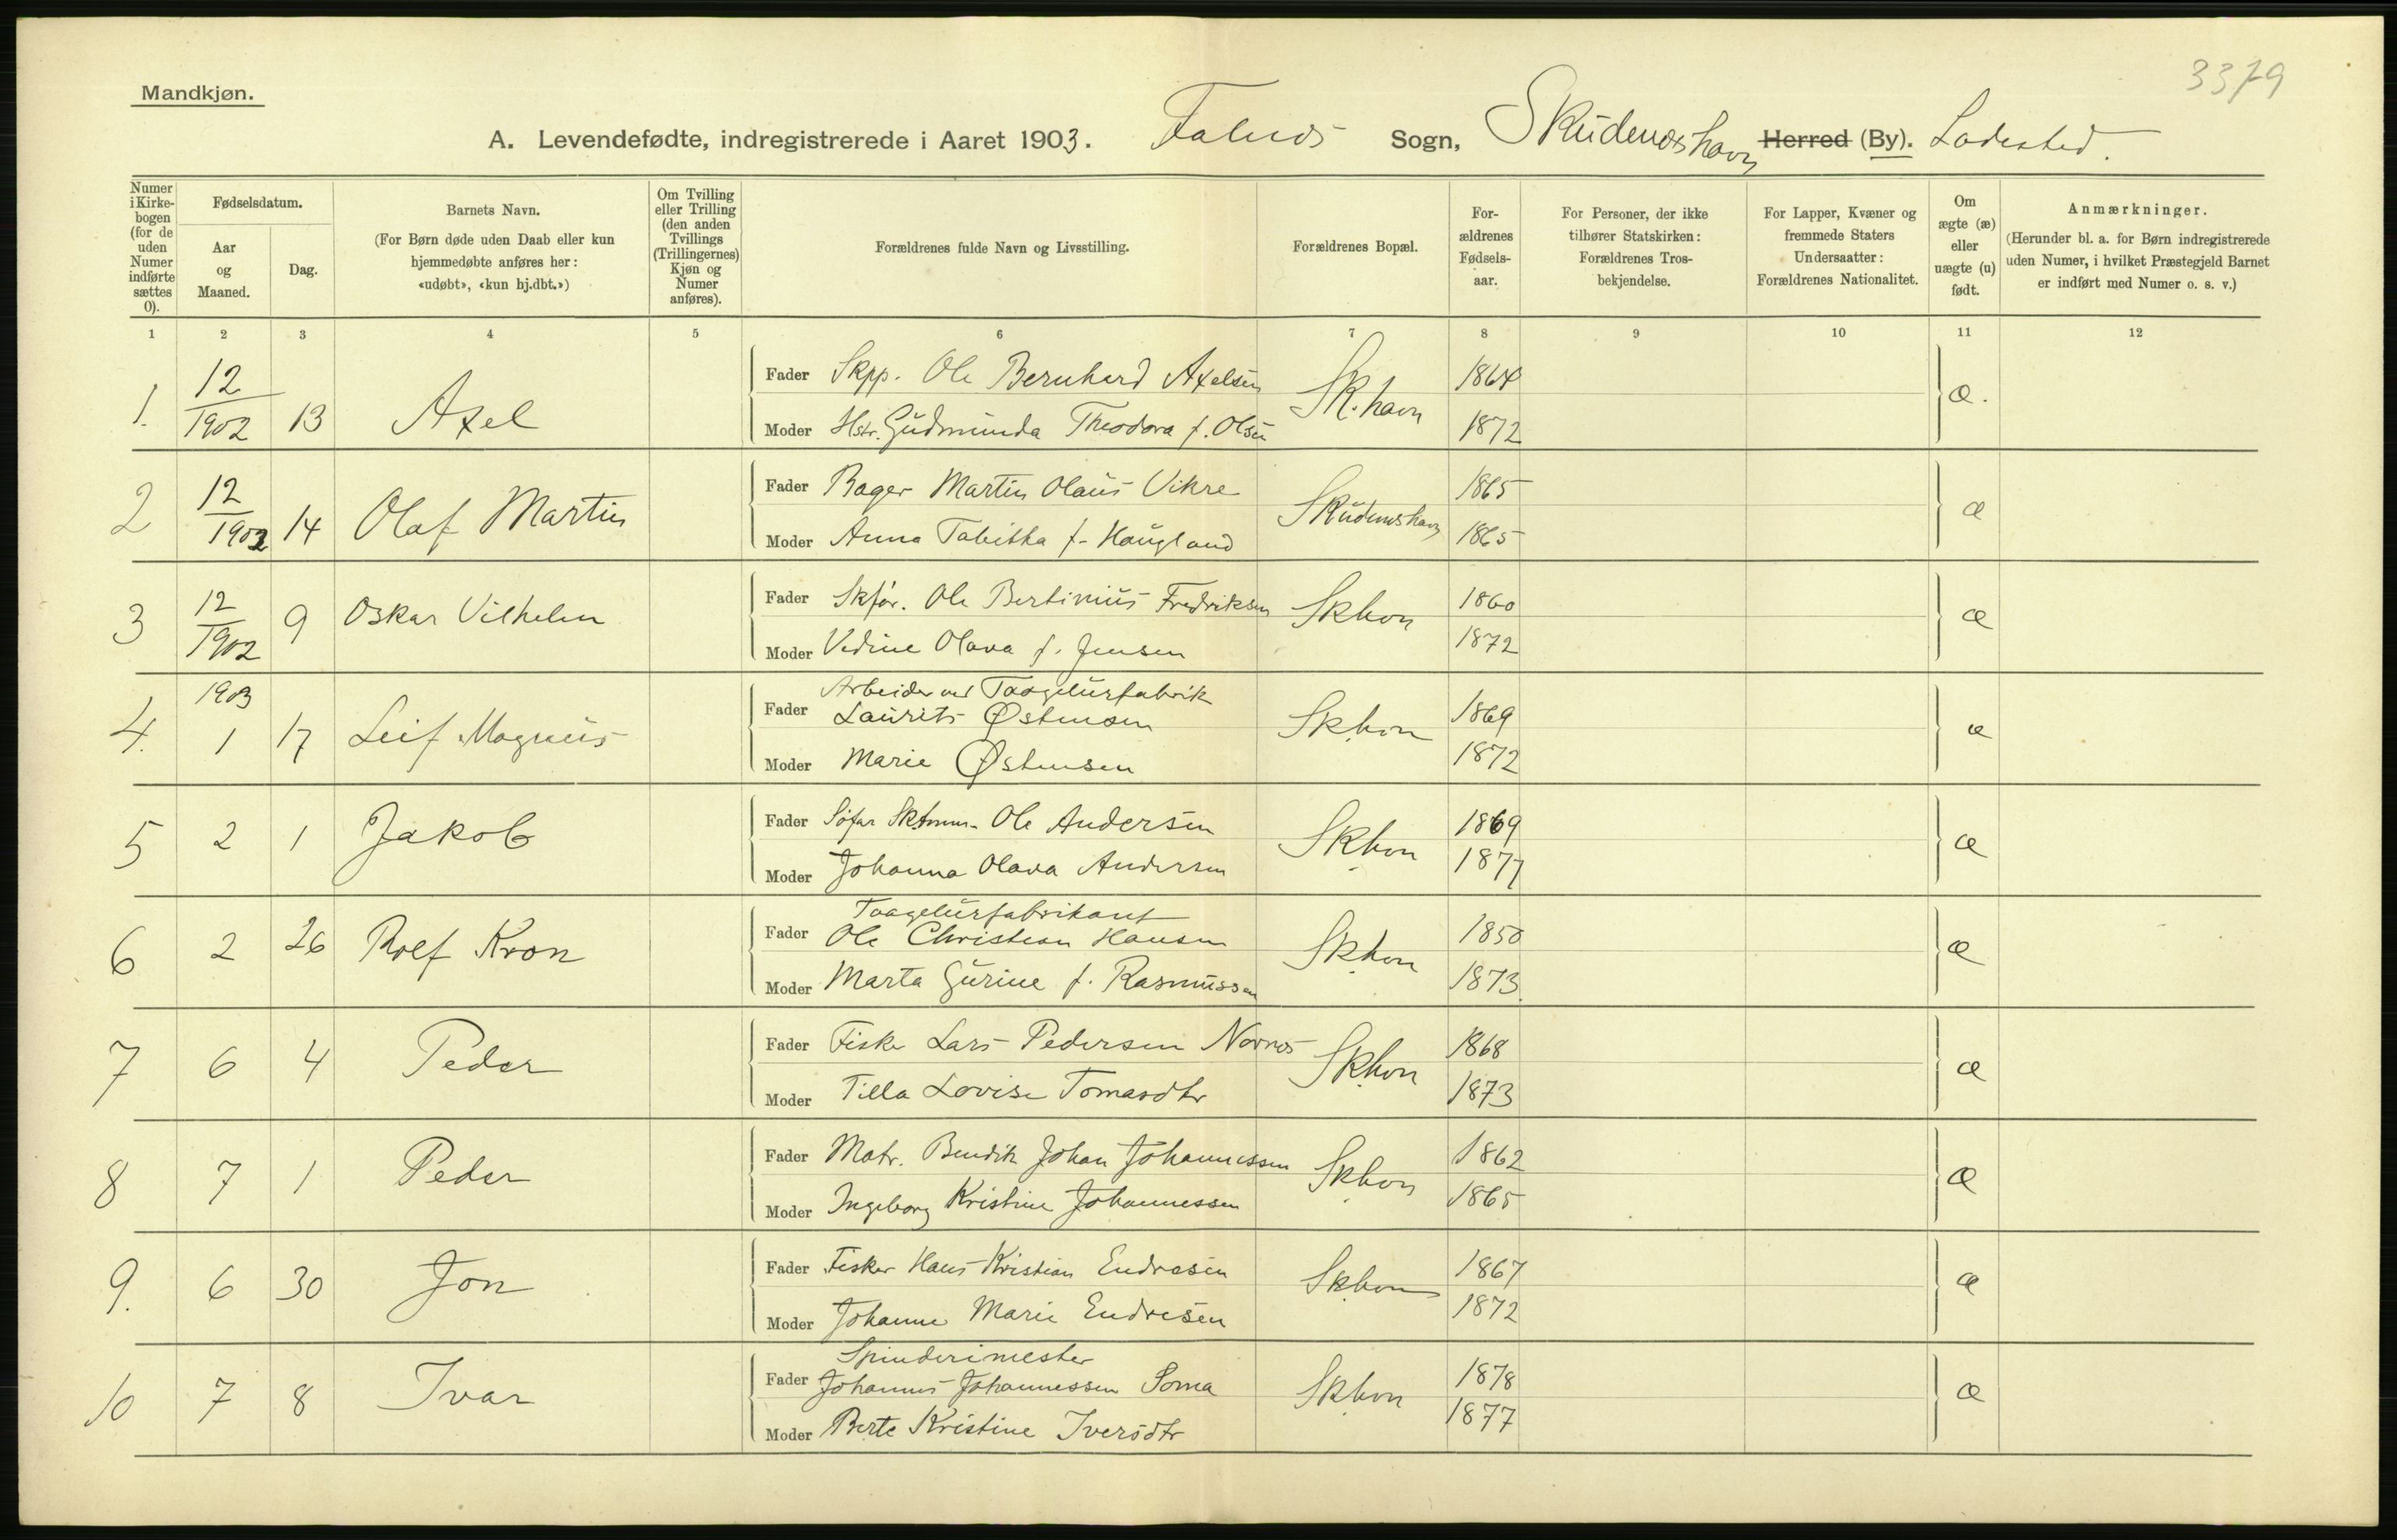 3379
Mandkjøn.
A. Levendefødte, indregistrerede i Aaret 1903. Falnes Sogn, Skudeneshavn Herred (By). Ladested.
Numer i Kirkebogen (for de uden Numer indførte sættes 0).
Fødselsdatum.
Aar og Maaned.
Dag.
Barnets Navn.
(For Børn døde uden Daab eller kun hjemmedøbte anføres her: «udøbt», «kun hj.dbt.»)
Om Tvilling eller Trilling (den anden Tvillings (Trillingernes) Kjøn og Numer anføres).
Forældrenes fulde Navn og Livsstilling.
Forældrenes Bopæl.
Forældrenes Fødselsaar.
For Personer, der ikke tilhører Statskirken: Forældrenes Trosbekjendelse.
For Lapper, Kvæner og fremmede Staters Undersaatter: Forældrenes Nationalitet.
Om ægte (æ) eller uægte (u) født.
Anmærkninger.
(Herunder bl. a. for Børn indregistrerede uden Numer, i hvilket Præstegjeld Barnet er indført med Numer o. s. v.)
1 2 3 4 5 6 7 8 9 10 11 12
1. 12/1902 13 Axel Fader Skpp. Ole Bernhard Axelsen Sk.havn 1864 æ.
Moder Hstr. Gudmunda Theodora f. Olsen 1872
2 12/1902 14 Olaf Martin Fader Bager Martin Olaus Vikre Skudeneshavn 1865 æ
Moder Anna Tabitha f. Haugland 1865
3 12/1902 9 Oskar Vilhelm Fader Skfør. Ole Bertinius Fredriksen Skhvn 1860 æ
Moder Vedine Olava f. Jensen 1872
4. 1903 1 17 Leif Magnus Fader Arbeider ved Taagelurfabrik
Laurits Østensen Skhvn 1869 æ
Moder Marie Østensen 1872
5 2 1 Jakob Fader Ole Andersen Skhvn 1869 æ
Moder Johanna Olava Andersen 1877
6 2 26 Rolf Kron Fader Taagelurfabrikant
Ole Christian Hansen Skhvn 1850 æ
Moder Marta Gurine f. Rasmussen 1873
7 6 4 Peder Fader Fisker Lars Pedersen Nornes Skhvn 1868 æ
Moder Tilla Lovise Tomasdtr 1873
8 7 1 Peder Fader Matr. Bendik Johan Johannessen Skhvn 1862 æ
Moder Ingeborg Kristine Johannessen 1865
9. 6 30 Jon Fader Fisker Hans Kristian Endresen Skhvn 1867 æ
Moder Johanne Marie Endresen 1872
10 7 8 Ivar Fader Spinderimester
Johannes Johannessen Soma Skhvn 1878 æ
Moder Berte Kristine Iversdtr 1877